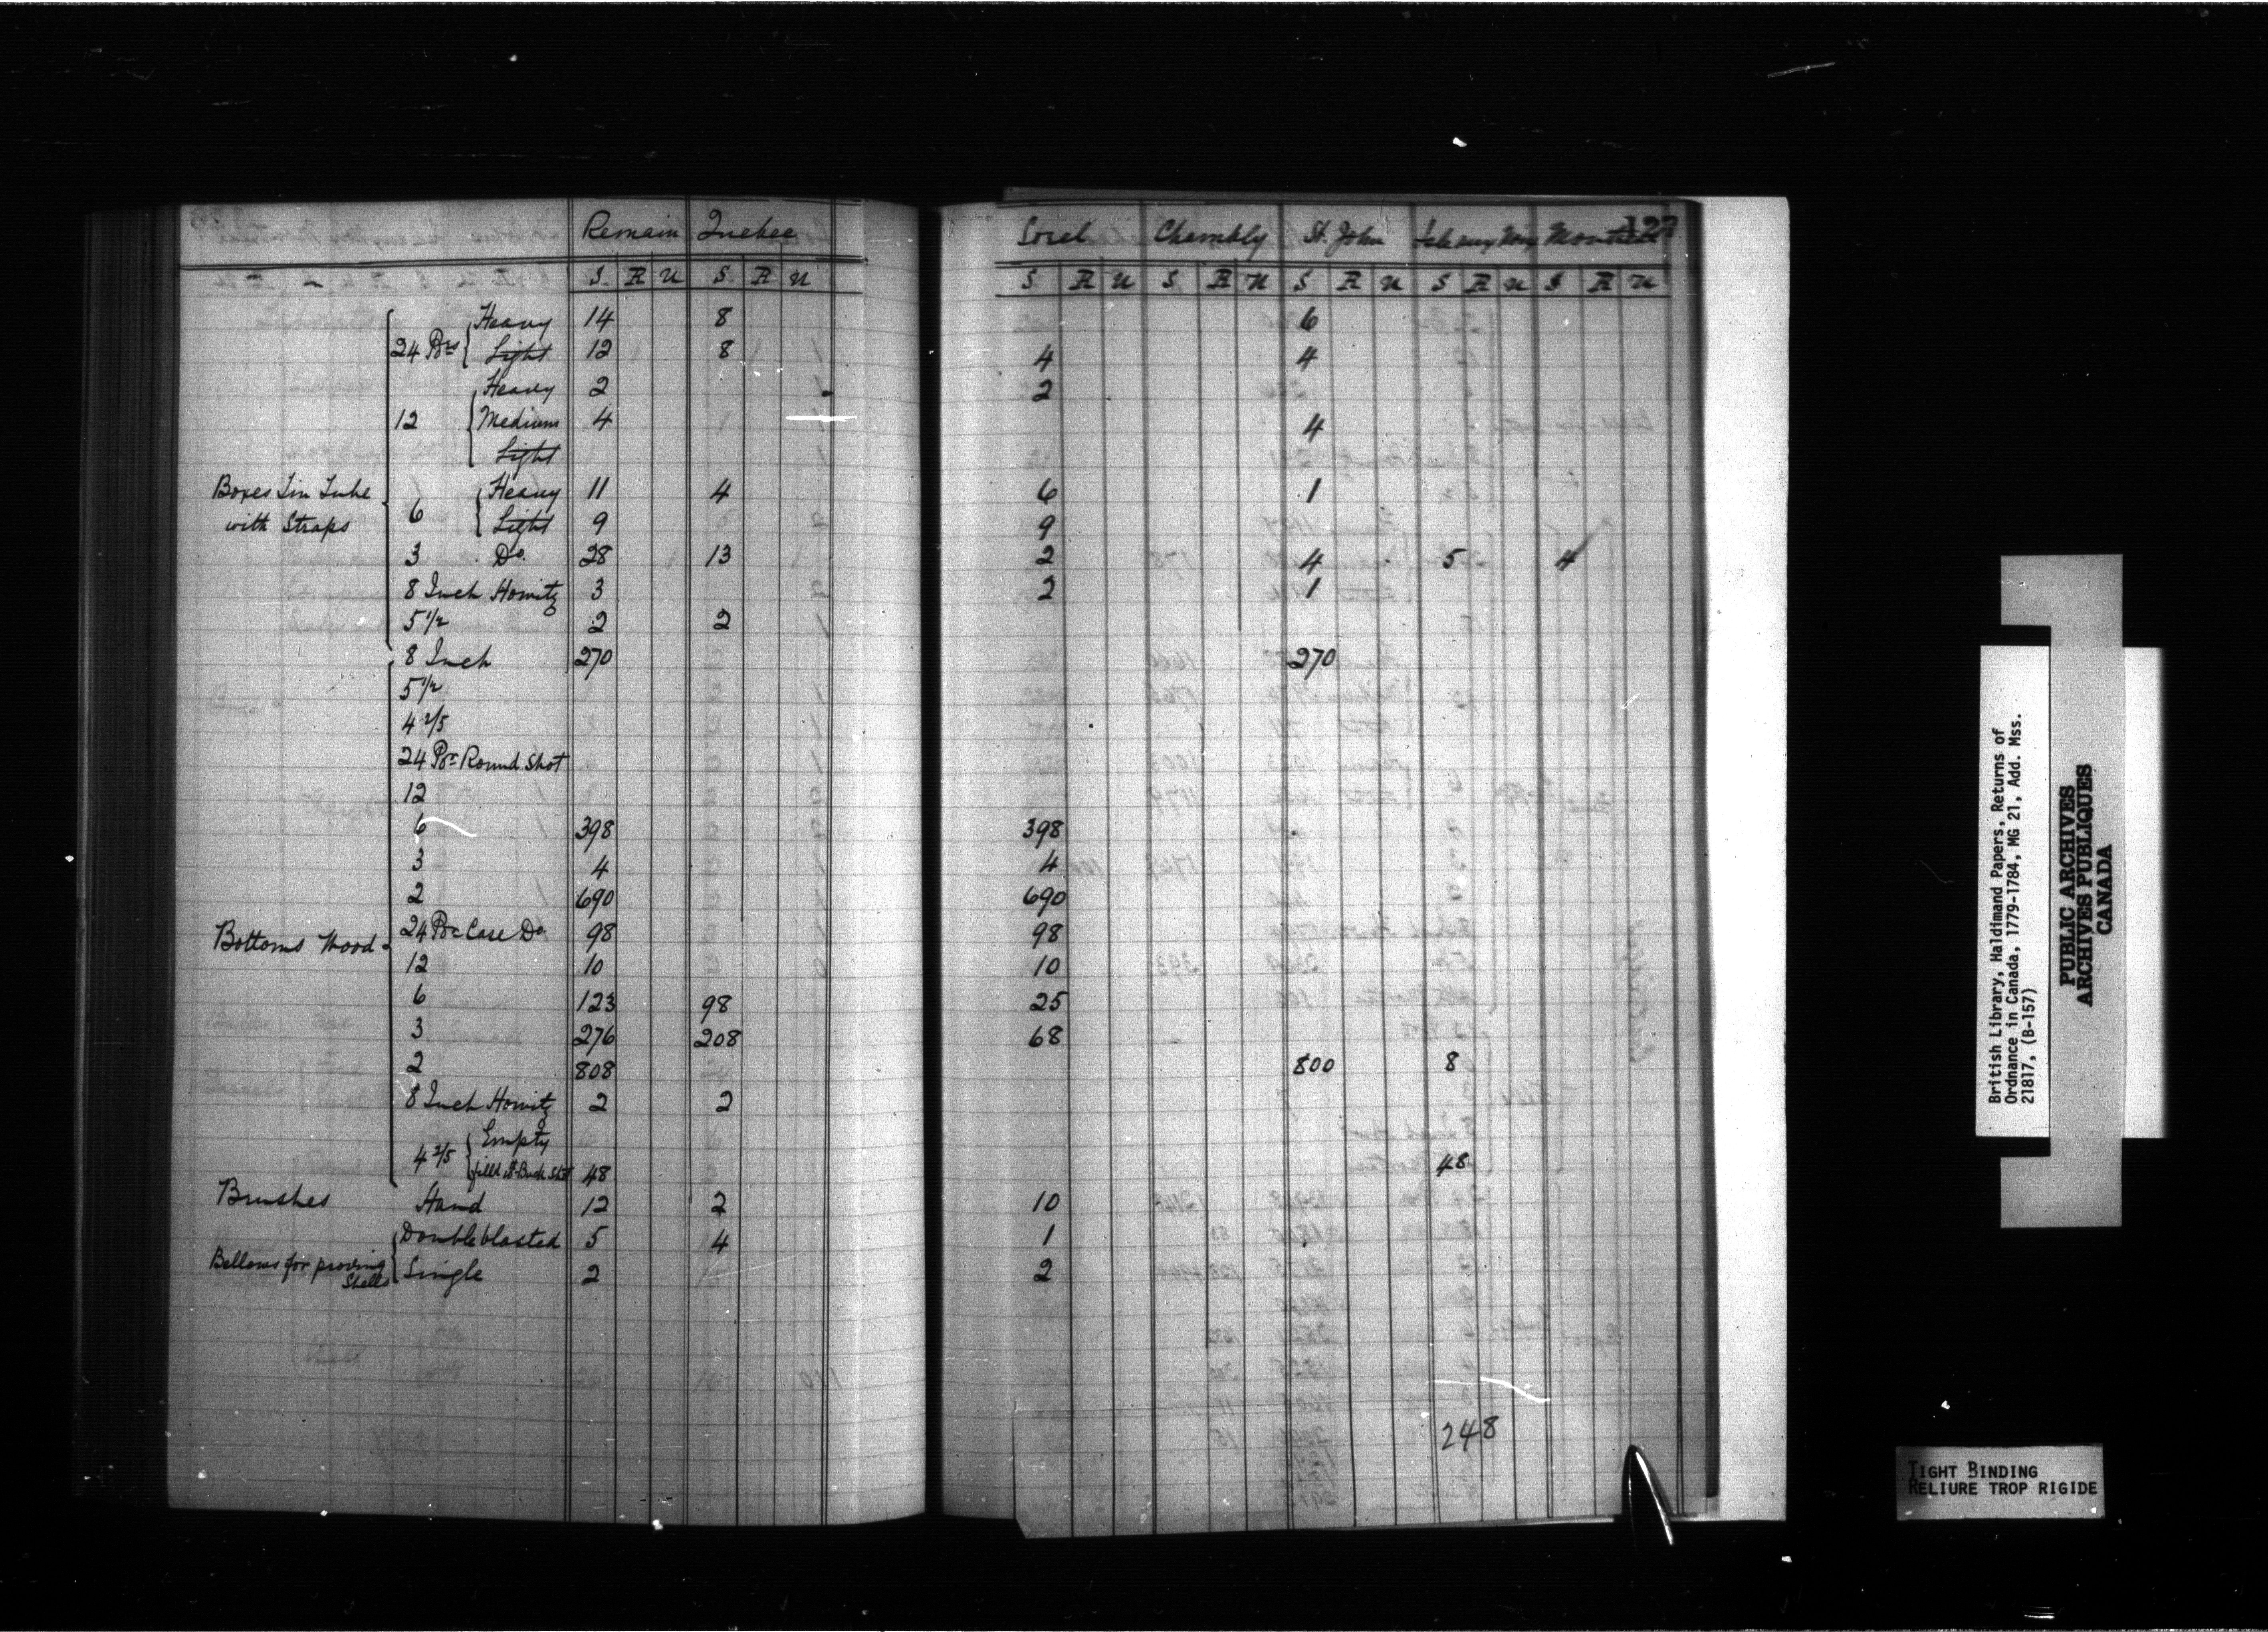 Remain Quebec Sorel Chambly St. John Isle aux Noix Montreal 127
S. R U S. R U S R U S. R U S R U S R U S R U
24 Prs Heavy 14 8 6
Light 12 8 4 4
Heavy 2 2
12 Medium 4 4
Light
Boxes Tin Tube with Straps
6 Heavy 11 4 6 1
Light 9 9
3 Do. 28 13 2 4 5 4
8 Inch Howitz 3 2 1
5 1/2 2 2
8 Inch 270 270
5 1/2
4 2/5
24 Pr Round Shot
12
6 398 398
3 4 4
2 690 690
Bottoms Wood
24 Pr Case Do 98 98
12 10 10
6 123 98 25
3 276 208 68
2 808 800 8
8 Inch Howitz 2 2
4 2/5 Empty
filld wt Buck Shot 48 48
Brushes Hand 12 2 10
Bellows for proving Shells
Double blasted 5 4 1
Single 2 2
248
British Library, Haldimand Papers, Returns of
Ordnance in Canada, 1779-1784, MG 21, Add. Mss.
21817, (B-157)
PUBLIC ARCHIVES
ARCHIVES PUBLIQUES
CANADA
TIGHT BINDING
RELIURE TROP RIGIDE